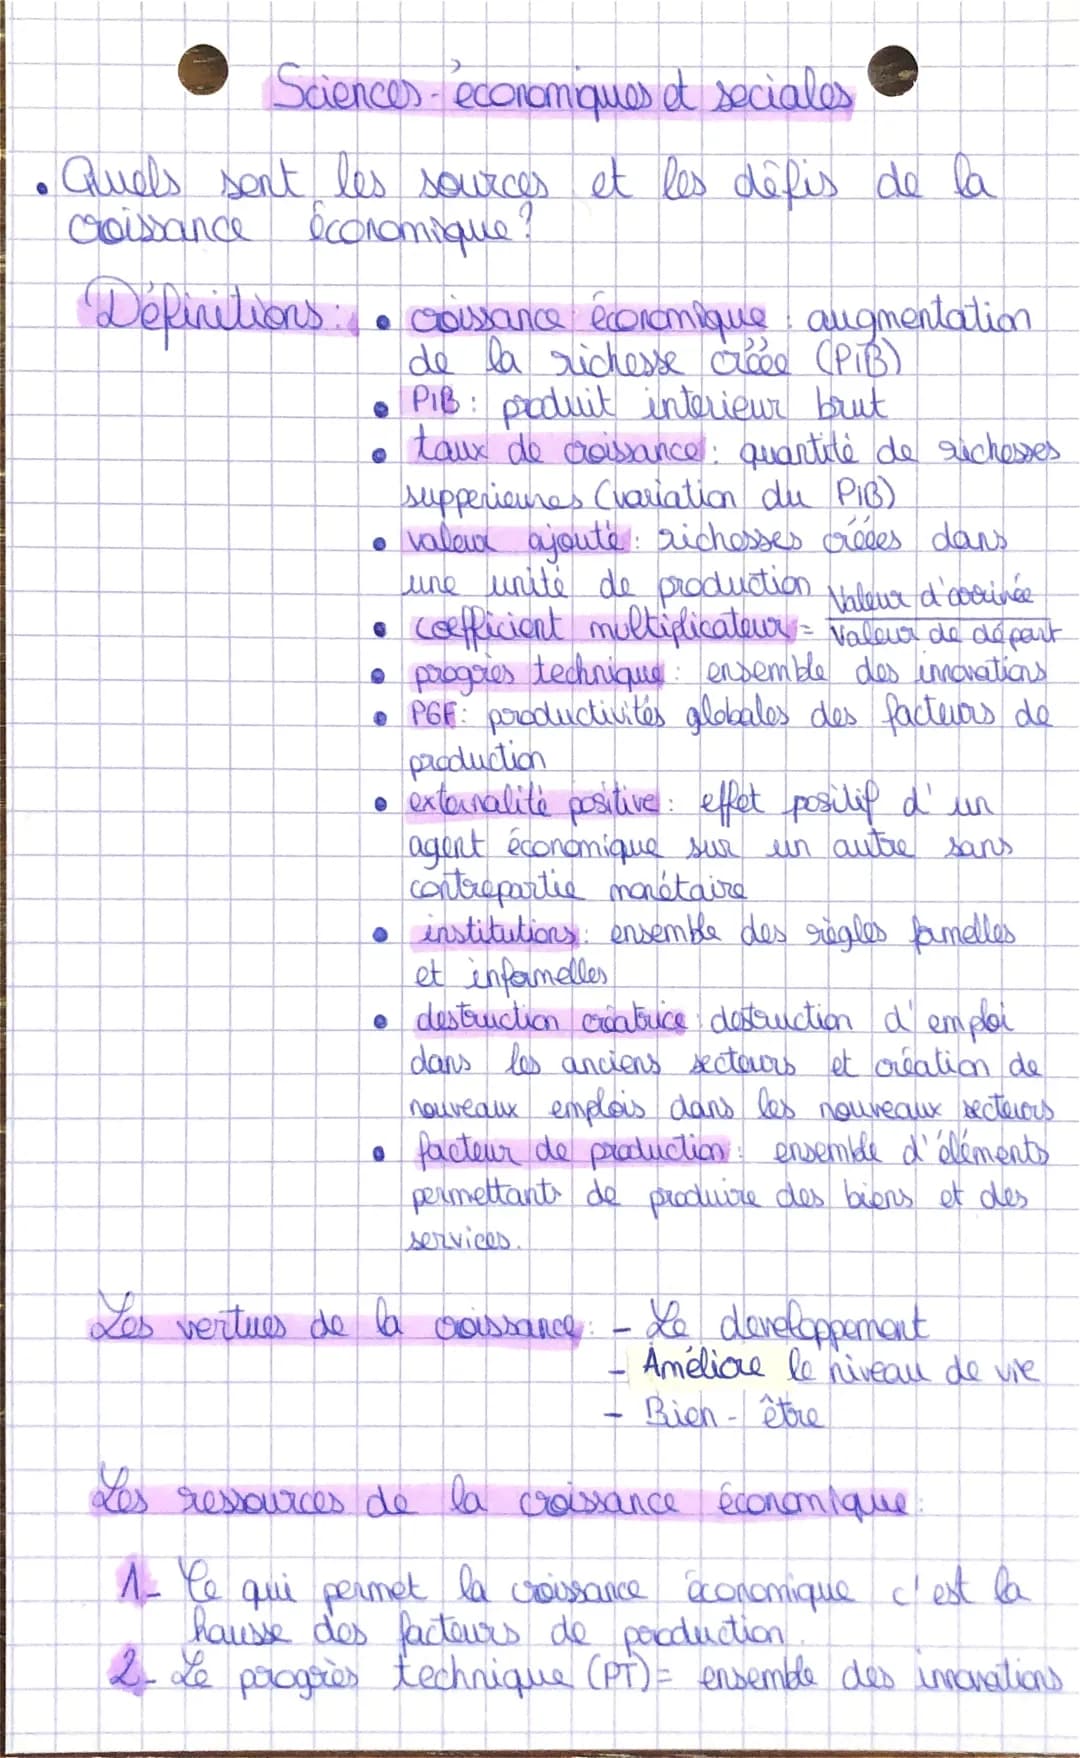 Sciences-économiques et sociales
• Quels sont les sources et les défis de la
croissance économique?
Définitions: • croissance économique : augmentation
de la richesse créée (PiB)
• PIB : produit interieur brut
• taux de croissance : quantité de richesses
supperieures (variation du PIB)
• valeur ajouté : richesses créées dans
une unité de production
• coefficient multiplicateur = Valeur d'arrivée / Valeur de départ
• progrès technique : ensemble des innovations
• PGF : productivités globales des facteurs de
production
• externalité positive : effet positif d'un
agent économique sur un autre sans
contrepartie monétaire
• institutions : ensemble des règles famelles
et infamelles
• destruction créatrice : destruction d'emploi
dans les anciens secteurs et création de
nouveaux emplois dans les nouveaux secteurs
• facteur de production : ensemble d'éléments
permettants de produire des biens et des
services.
Les vertues de la croissance : - Le developpement
- Améliore le niveau de vie
- Bien-être
Les ressources de la croissance économique :
1- Ce qui permet la croissance économique c'est la
hausse des facteurs de production.
2- Le progrès technique (PT) = ensemble des innovations